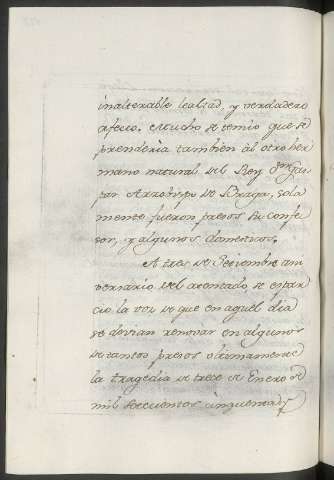 inalterable lealtad, y verdadero
afecto. Mucho se temio que se
prenderia tambien àl otro her
mano natural del Rey Dⁿ Gas
par Arzobispo de Braga, sola
mente fueron presos su confe
sor, y algunos domesticos.
A tres de Setiembre ani
versario del atentado se espar
cio la voz de que en aquel dia
se devian renovar en algunos
de tantos presos ultimamente
la tragedia de trece de Enero de
mil setecientos cinquenta y